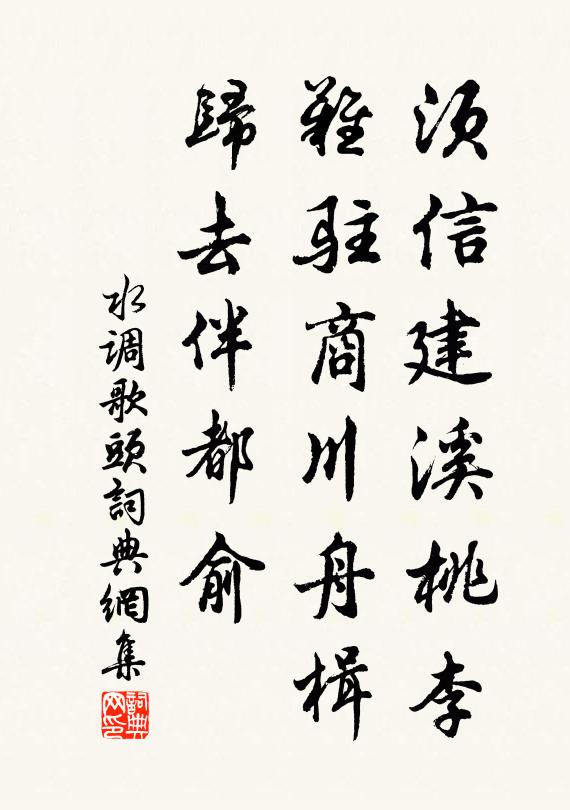 须信建溪桃李
難駐商川舟楫
歸去伴都俞
水调歌頭詞典網集
詞典網印